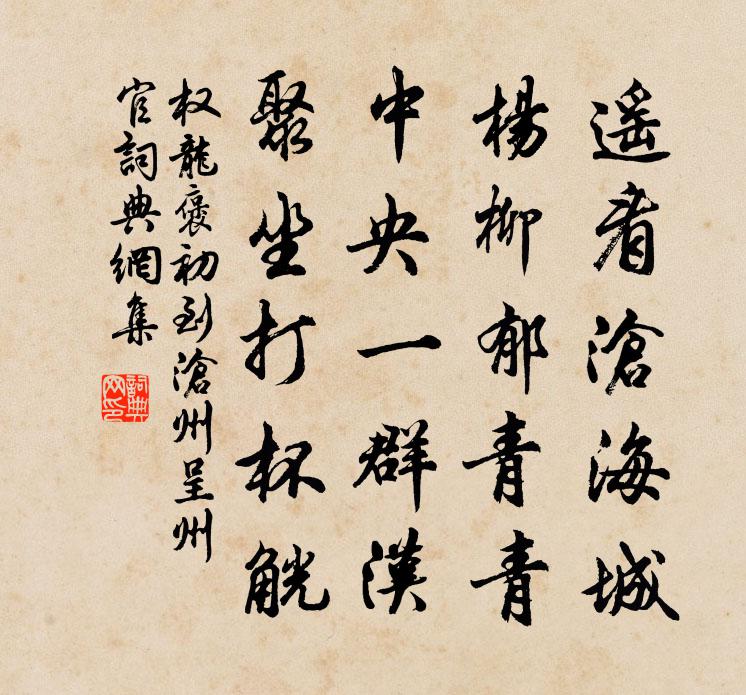 遥看滄海城
楊柳郁青青
中央一群漢
聚坐打杯觥
权龍褒初到滄州呈州
官詞典網集
詞典
网印